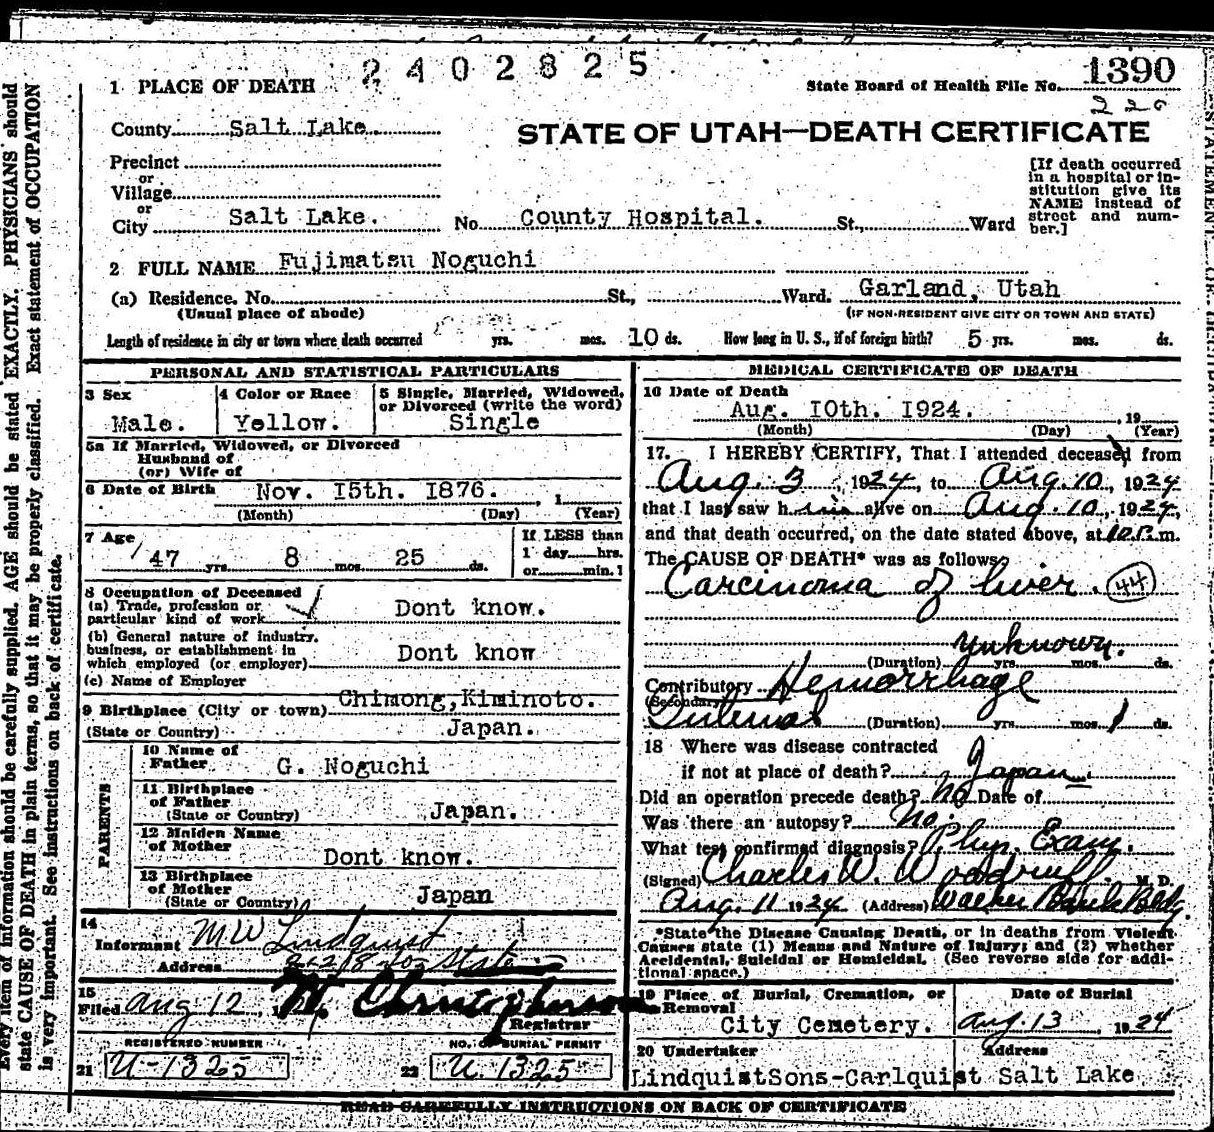 2402825
1 PLACE OF DEATH
State Board of Health File No. 1390
220
County Salt Lake.
STATE OF UTAH—DEATH CERTIFICATE
Precinct
or
Village
or
City Salt Lake. No. County Hospital. St., Ward
[If death occurred
in a hospital or in-
stitution give its
NAME instead of
street and num-
ber.]
2 FULL NAME Fujimatsu Noguchi
(a) Residence. No. St., Ward. Garland, Utah
(Usual place of abode) (IF NON-RESIDENT GIVE CITY OR TOWN AND STATE)
Length of residence in city or town where death occurred yrs. mos. 10 ds. How long in U. S., if of foreign birth? 5 yrs. mos. ds.
PERSONAL AND STATISTICAL PARTICULARS
3 Sex
Male.
4 Color or Race
Yellow.
5 Single, Married, Widowed,
or Divorced (write the word)
Single
5a If Married, Widowed, or Divorced
Husband of
(or) Wife of
6 Date of Birth Nov. I5th. I876. , 1
(Month) (Day) (Year)
7 Age
47 yrs. 8 mos. 25 ds.
If LESS than
1 day hrs.
or min. 1
8 Occupation of Deceased
(a) Trade, profession or
particular kind of work Dont know.
(b) General nature of industry,
business, or establishment in
which employed (or employer) Dont know
(c) Name of Employer
9 Birthplace (City or town) Chimong,Kiminoto.
(State or Country) Japan.
PARENTS
10 Name of
Father G. Noguchi
11 Birthplace
of Father
(State or Country) Japan.
12 Maiden Name
of Mother Dont know.
13 Birthplace
of Mother
(State or Country) Japan
14
Informant M W Lindquist
Address 2218 So State
15
Filed Aug 12, 1924 M. Christopherson
Registrar
REGISTERED NUMBER
21 U-1325
NO. OF BURIAL PERMIT
22 U. 1325
MEDICAL CERTIFICATE OF DEATH
16 Date of Death
Aug. I0th. I924. , 19
(Month) (Day) (Year)
17. I HEREBY CERTIFY, That I attended deceased from
Aug. 3, 1924, to Aug. 10, 1924
that I last saw him alive on Aug. 10, 1924,
and that death occurred, on the date stated above, at 10 P.m.
The CAUSE OF DEATH* was as follows:
Carcinoma of liver. 44
unknown.
(Duration) yrs. mos. ds.
Contributory Hemorrhage
(Secondary)
Internal (Duration) yrs. mos. 1 ds.
18 Where was disease contracted
if not at place of death? Japan.
Did an operation precede death? No Date of
Was there an autopsy? No.
What test confirmed diagnosis? Phys. Exam.
(Signed) Charles W. Woodruff M. D.
Aug. 11 1924 (Address) Walker Bank Bldg.
*State the Disease Causing Death, or in deaths from Violent
Causes state (1) Means and Nature of Injury; and (2) whether
Accidental, Suicidal or Homicidal. (See reverse side for addi-
tional space.)
19 Place of Burial, Cremation, or
Removal
City Cemetery.
Date of Burial
Aug. 13, 1924
20 Undertaker Address
LindquistSons-Carlquist Salt Lake
READ CAREFULLY INSTRUCTIONS ON BACK OF CERTIFICATE
Every item of information should be carefully supplied. AGE should be stated EXACTLY. PHYSICIANS should
state CAUSE OF DEATH in plain terms, so that it may be properly classified. Exact statement of OCCUPATION
is very important. See instructions on back of certificate.